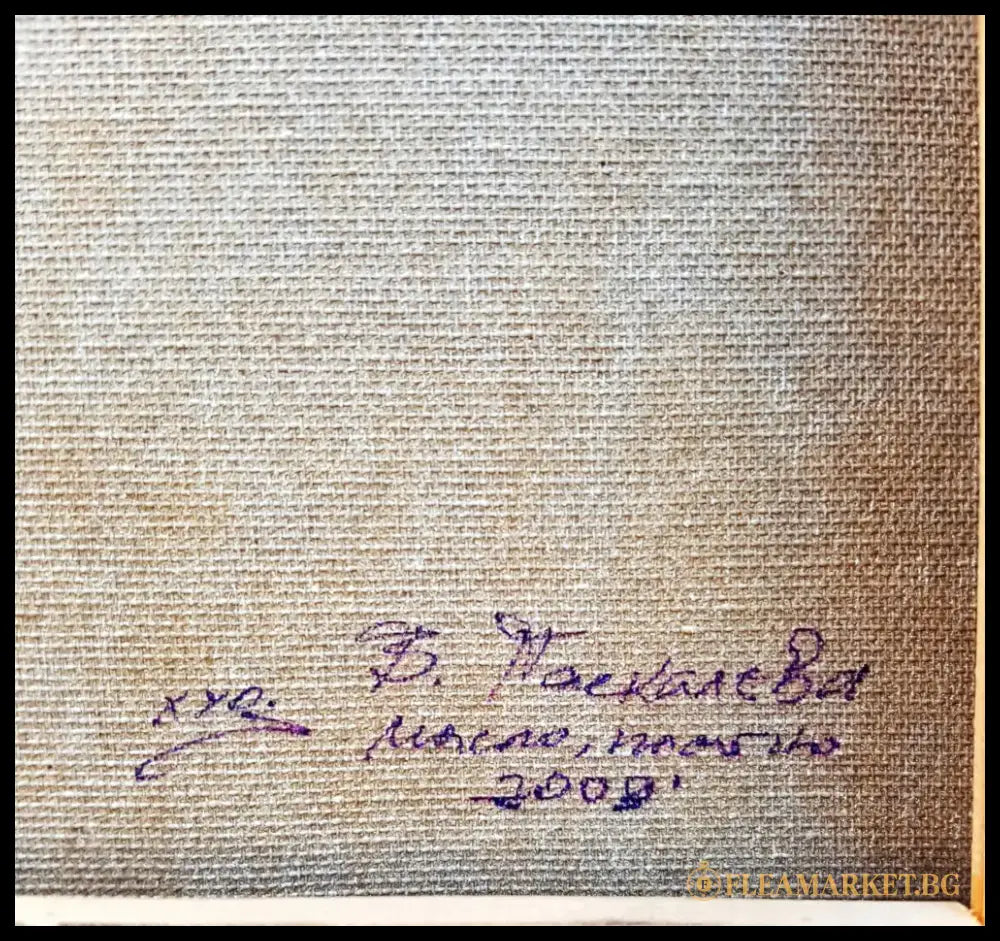 худ. Б. Паскалева
масло, платно
FLEAMARKET.BG